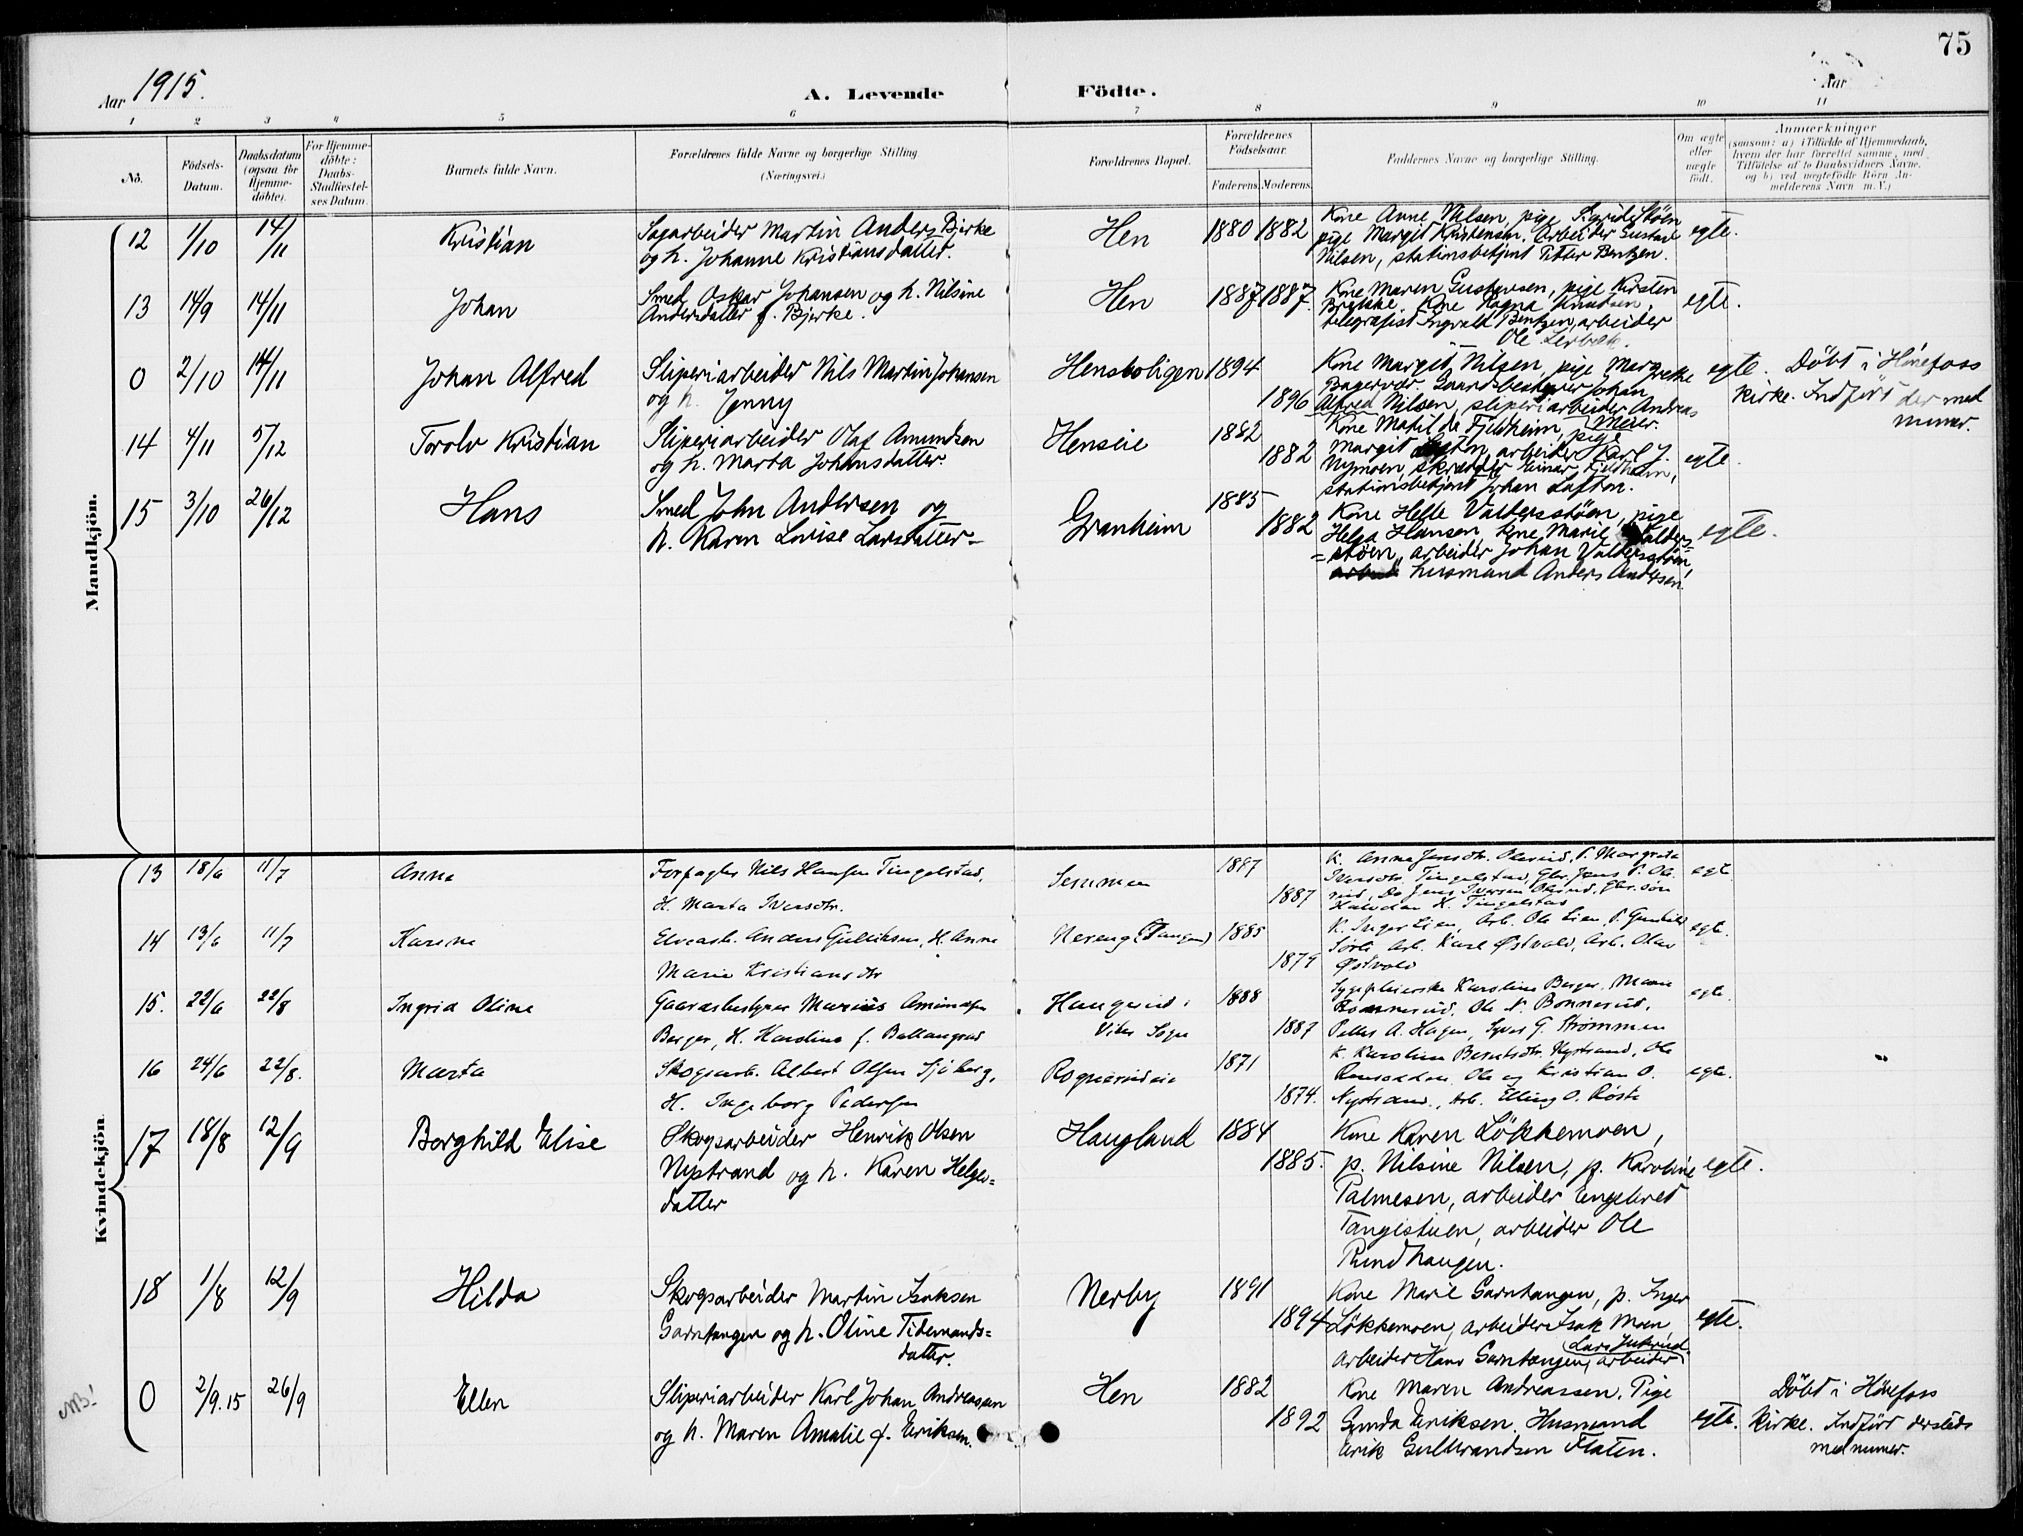 75
Aar 1915.
A. Levende Födte.
Aar
1 2 3 4 5 6 7 8 9 10 11
No.
Födsels-Datum.
Daabsdatum (ogsaa for Hjemme-döbte).
For Hjemme-döbte: Daabs-Stadfæstel-ses Datum.
Barnets fulde Navn.
Forældrenes fulde Navne og borgerlige Stilling (Næringsvei.)
Forældrenes Bopæl.
Forældrenes Födselsaar.
Faderens. Moderens.
Faddernes Navne og borgerlige Stilling.
Om ægte eller uægte födt.
Anmærkninger
(saasom: a) i Tilfælde af Hjemmedaab, hvem der har forrettet samme, med Tilföielse af to Daabsvidners Navne, og b) ved uægtefödte Börn An-melderens Navn m. V.)
Mandkjön.
12 1/10 14/11 Kristian
Sagarbeider Martin Anders. Bjerke
og h. Johanne Kristiansdatter.
Hen 1880 1882
Kone Anne Nilsen, pige Sigrid Støen
pige Margit Kristensen. Arbeider Gustav
Nilsen, stationsbetjent Petter Bentzen.
egte.
13 14/9 14/11 Johan
Smed Oskar Johansen og h. Nilsine
Andersdatter f. Bjerke.
Hen 1887 1887.
Kone Maren Gustavsen, pige Kirsten
Brekke, Kone Ragna Knudsen,
telegrafist Ingvald Bentzen, arbeider
Ole
egte.
0 2/10 14/11 Johan Alfred
Sliperiarbeider Nils Martin Johansen
og h. Jenny
Hensboligen 1894
1896
Kone Margit Nilsen, pige Margrethe
Gaardsbestyrer Johan
Alfred Nilsen, sliperiarbeider Andreas
Meier.
egte. Döbt i Hönefoss
kirke. Indført der med
numer.
14 4/11 5/12 Torolv Kristian
Sliperiarbeider Olaf Amundsen
og h. Marta Johansdatter.
Henseie 1882
1882
Kone Matilde Fjeldheim, pige
Margit arbeider Karl J.
Nymoen, skrædder Einar Fjeldheim,
stationsbetjent Johan Lafton.
egte.
15 3/10 26/12 Hans
Smed John Andersen og
h. Karen Lovise Larsdatter
Granheim 1885
1882
Kone Helle Valdersstøen, pige
Helga Hansen, Kone Marie Valders=
=støen, arbeider Johan Valdersstøen,
husmand Anders Andersen.
egte.
Kvindekjön
13 18/6 11/7 Anna
Forpagter Nils Hansen Tingelstad,
H. Marta Iversdtr.
Semmen 1887
1887
K. Anna Jensdtr. Olerud, P. Margrete
Iversdtr. Tingelstad, Gbr. Jens P. Ole-
rud, Do Jens Iversen Olerud, Gbr. søn
Halvdan H. Tingelstad
egte
14 13/6 11/7 Karine
Elvearb. Anders Gulliksen, H. Anna
Marie Kristiansdtr
Nereng (Tangen) 1885
1879
K. Inger Lien, Arb. Ole Lien, P. Gunhild
Sørli, Arb. Karl Østvold, Arb. Olav
Østvold
egte.
15. 22/6 22/8 Ingrid Oline
Gaardsbestyrer Marius Amundsen
Berger, H. Karoline f. Ballangrud
Haugerud i
Viker Sogn
1888
1887
Sygepleierske Karoline Berger, Marie
Bonnerud, Ole N. Bonnerud,
Petter A. Hagen, Syver G. Strømmen
egte.
16 24/6 22/8. Marta
Skogsarb. Albert Olsen Sjøberg,
H. Ingeborg Pedersen
Rognerudeie 1871
1874.
K. Karoline Berntsdtr. Nystrand, Ole
Ole og Kristian O.
Nystrand, Arb. Elling O. Røste
egte.
17 18/8 12/9 Borghild Elise
Skogsarbeider Henrik Olsen
Nystrand og h. Karen Helges=
datter
Haugland 1884
1885.
Kone Karen Løkkemoen,
p. Nilsine Nilsen, p. Karoline
Palmesen, arbeider Engebret
Tangestuen, arbeider Ole
Rundhaugen.
egte.
18 1/8 12/9 Hilda
Skogsarbeider Martin Isaksen
Garntangen og h. Oline Tidemands=
datter.
Nerby 1891
1894
Kone Marie Garntangen, p. Inger
Løkkemoen, arbeider Isak Moen
arbeider Hans Garntangen, arbeider
egte.
NB!
0 2/9.15 26/9 Ellen
Sliperiarbeider Karl Johan Andreassen
og h. Maren Amalie f. Eriksen.
Hen 1882
1892
Kone Maren Andreassen. Pige
Gunda Eriksen. Husmand
Erik Gulbrandsen Flaten.
egte.
Döbt i Hönefoss
Kirke. Indført dersteds
med numer.